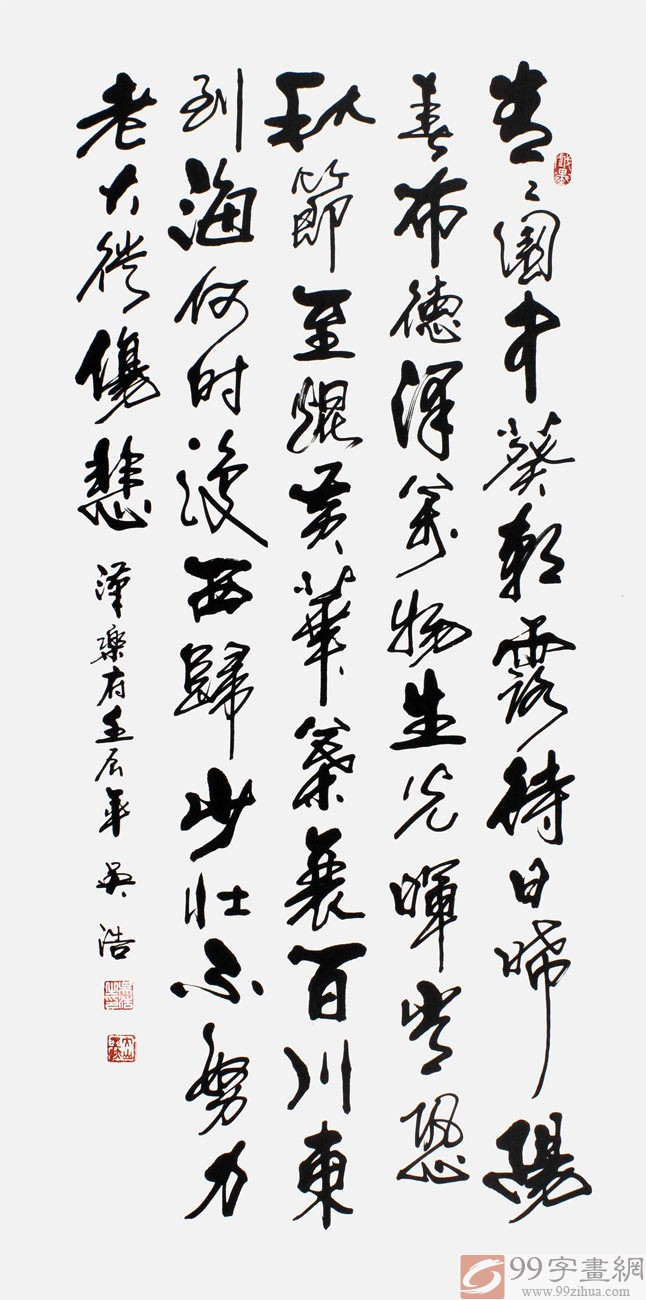 青〻園中葵朝露待日晞陽
春布德澤萬物生光暉常恐
秋節至焜黃華葉衰百川東
到海何时復西歸少壯不努力
老大徒傷悲
漢樂府壬辰年 吳浩
99字畫網
www.99zihua.com